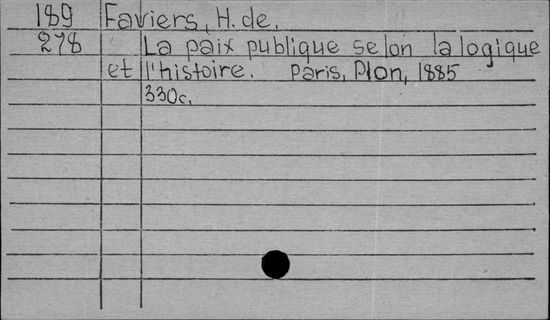 189 Faviers, H. de.
278 La paix publique selon la logique
et l'histoire. Paris, Plon, 1885
330c.